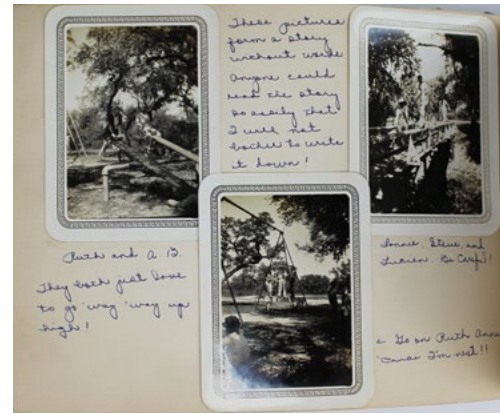 These pictures
form a story
without words
anyone could
read the story
so easily that
I will not
bother to write
it down!
Ruth and A. B.
They both just love
to go 'way 'way up
high!
Lonnie, Steve, and
Lucien. Be Careful!
Go on Ruth Anna
'cause I'm next!!